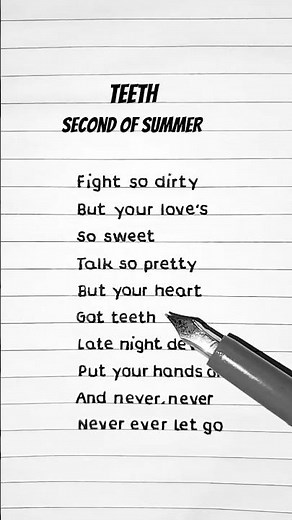 TEETH
SECOND OF SUMMER
Fight so dirty
But your love's
So sweet
Talk so pretty
But your heart
Got teeth
Late night
Put your hands
And never, never
Never ever let go